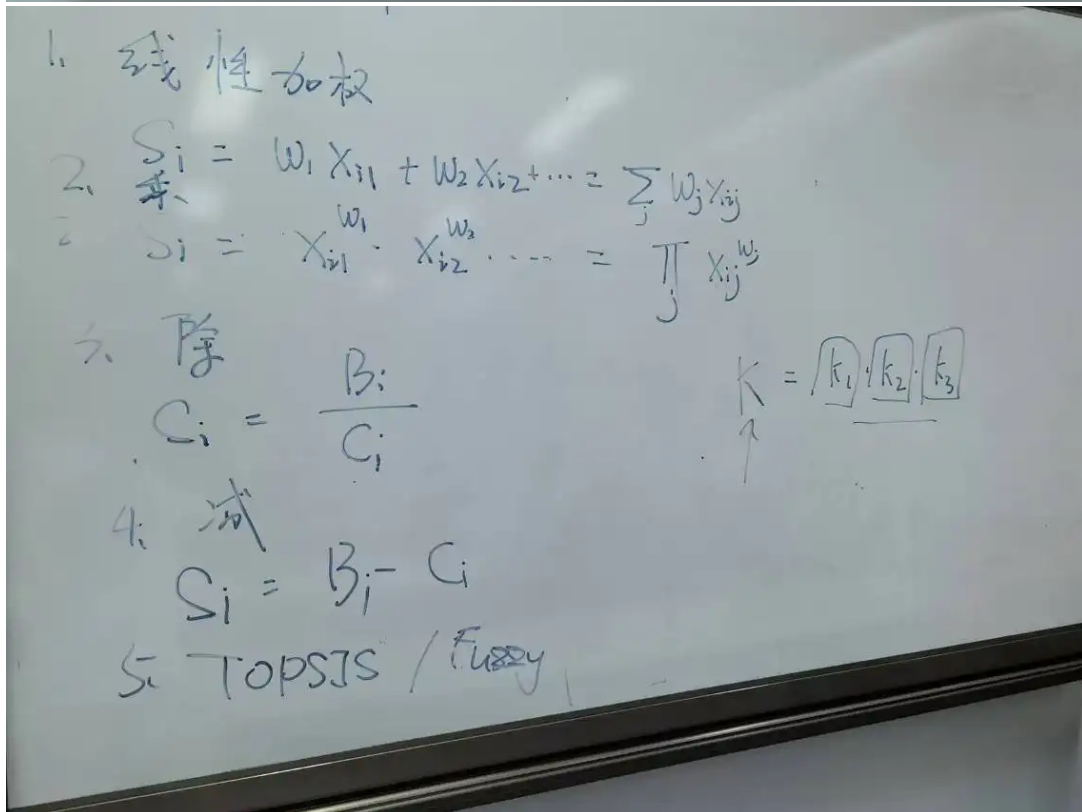 1. 线性加权
Si = W1 Xi1 + W2 Xi2 + ... = ∑j Wj Xij
2. 乘
Si = Xi1^W1 · Xi2^W2 ···· = ∏j Xij^Wj
3. 除
Ci = Bi / Ci
K = k1 · k2 · k3
4. 减
Si = Bi - Ci
5. TOPSIS / Fuzzy